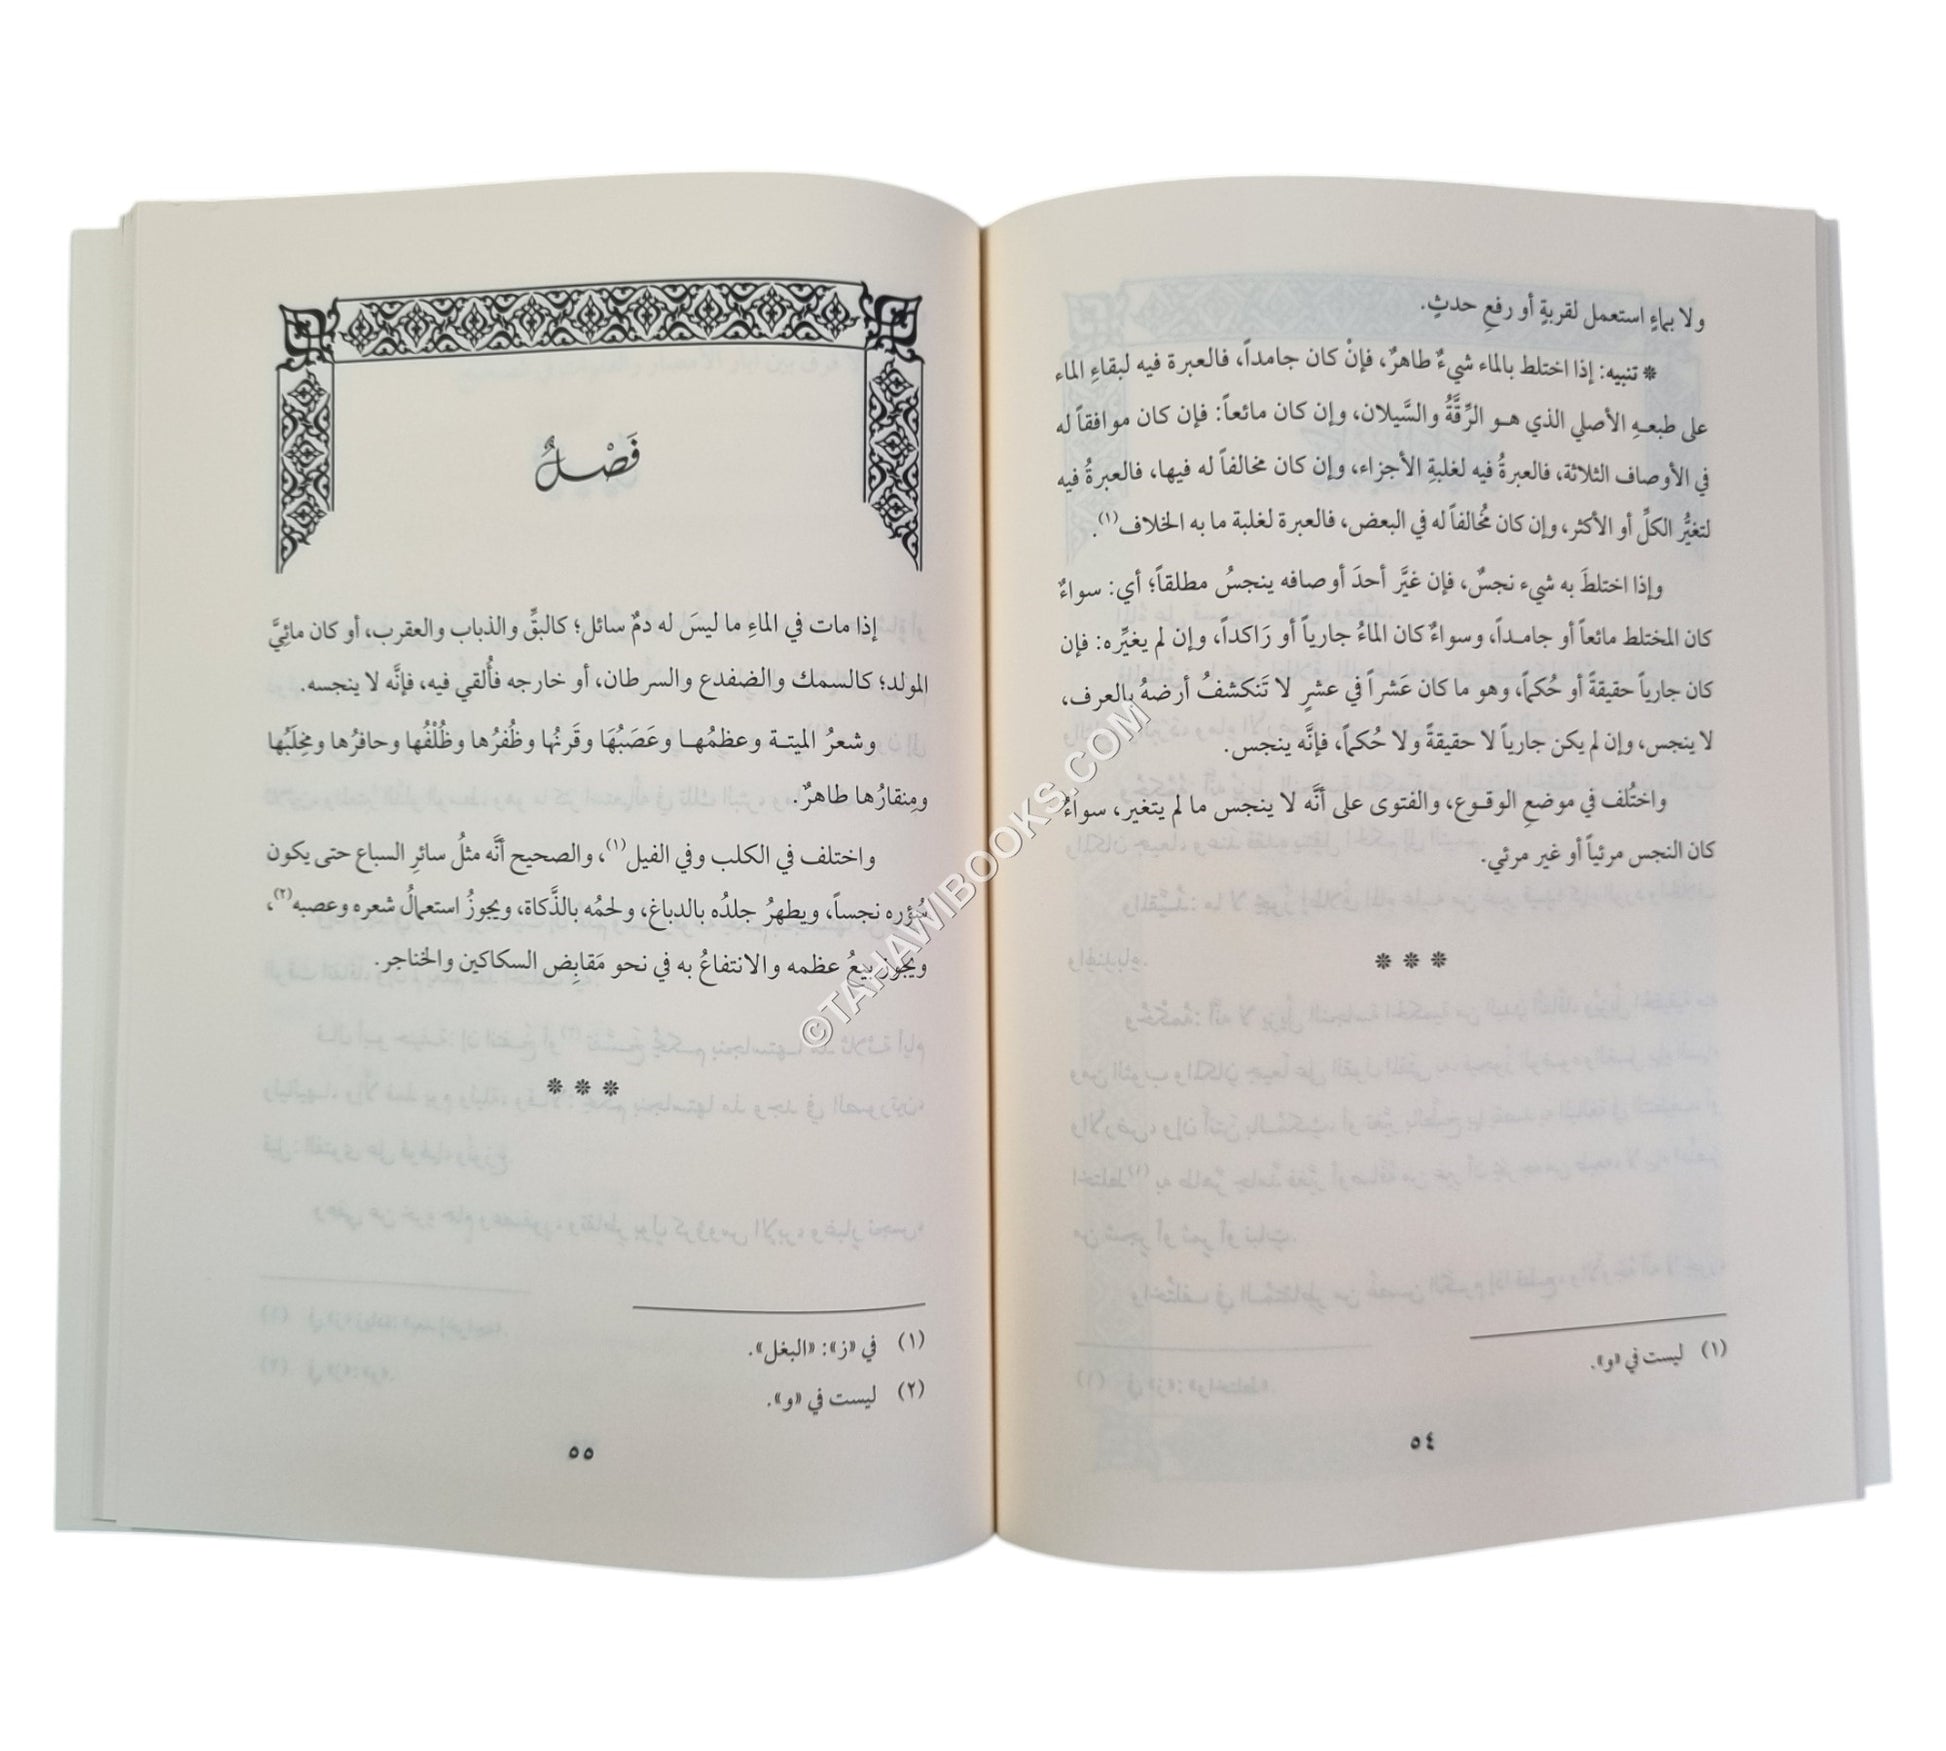 ولا بماءٍ استعمل لقربةٍ أو رفعِ حدثٍ.
❊ تنبيه: إذا اختلط بالماء شيءٌ طاهرٌ، فإنْ كان جامداً، فالعبرة فيه لبقاءِ الماء
على طبعهِ الأصلي الذي هو الرِّقَّةُ والسَّيلان، وإن كان مائعاً: فإن كان موافقاً له
في الأوصاف الثلاثة، فالعبرةُ فيه لغلبةِ الأجزاء، وإن كان مخالفاً له فيها، فالعبرةُ فيه
لتغيُّر الكلِّ أو الأكثر، وإن كان مُخالفاً له في البعض، فالعبرة لغلبة ما به الخلاف(١).
وإذا اختلطَ به شيء نجسٌ، فإن غيَّر أحدَ أوصافه ينجسُ مطلقاً؛ أي: سواءٌ
كان المختلط مائعاً أو جامداً، وسواءٌ كان الماءُ جارياً أو رَاكداً، وإن لم يغيِّره: فإن
كان جارياً حقيقةً أو حُكماً، وهو ما كان عَشراً في عشرٍ لا تَنكشفُ أرضهُ بالعرف،
لا ينجس، وإن لم يكن جارياً لا حقيقةً ولا حُكماً، فإنَّه ينجس.
واختُلف في موضعِ الوقوع، والفتوى على أنَّه لا ينجس ما لم يتغير، سواءٌ
كان النجس مرئياً أو غير مرئي.
❊ ❊ ❊
(١) ليست في «و».
٥٤
فَصْلٌ
إذا مات في الماءِ ما ليسَ له دمٌ سائل؛ كالبقِّ والذباب والعقرب، أو كان مائِيَّ
المولد؛ كالسمك والضفدع والسرطان، أو خارجه فأُلقي فيه، فإنَّه لا ينجسه.
وشعرُ الميتة وعظمُها وعَصَبُهَا وقَرنُها وظُفرُها وظُلْفُها وحافرُها ومخِلَبُها
ومِنقارُها طاهرٌ.
واختلف في الكلب وفي الفيل(١)، والصحيح أنَّه مثلُ سائرِ السباع حتى يكون
سُؤره نجساً، ويطهرُ جلدُه بالدباغ، ولحمُه بالذَّكاة، ويجوزُ استعمالُ شعره وعصبه(٢)،
ويجوز بيعُ عظمه والانتفاعُ به في نحو مَقابِض السكاكين والخناجر.
❊ ❊ ❊
(١) في «ز»: «البغل».
(٢) ليست في «و».
٥٥
©TAHAWIBOOKS.COM